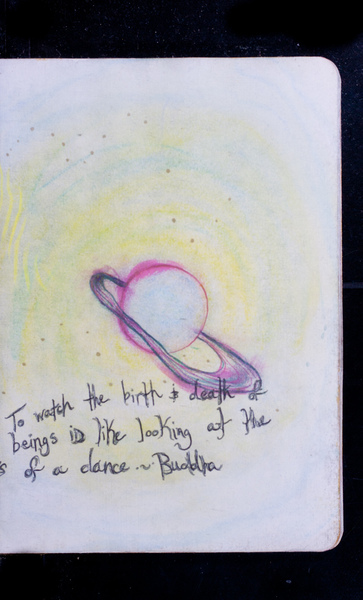 To watch the birth & death of
beings is like looking at the
s of a dance ~ Buddha